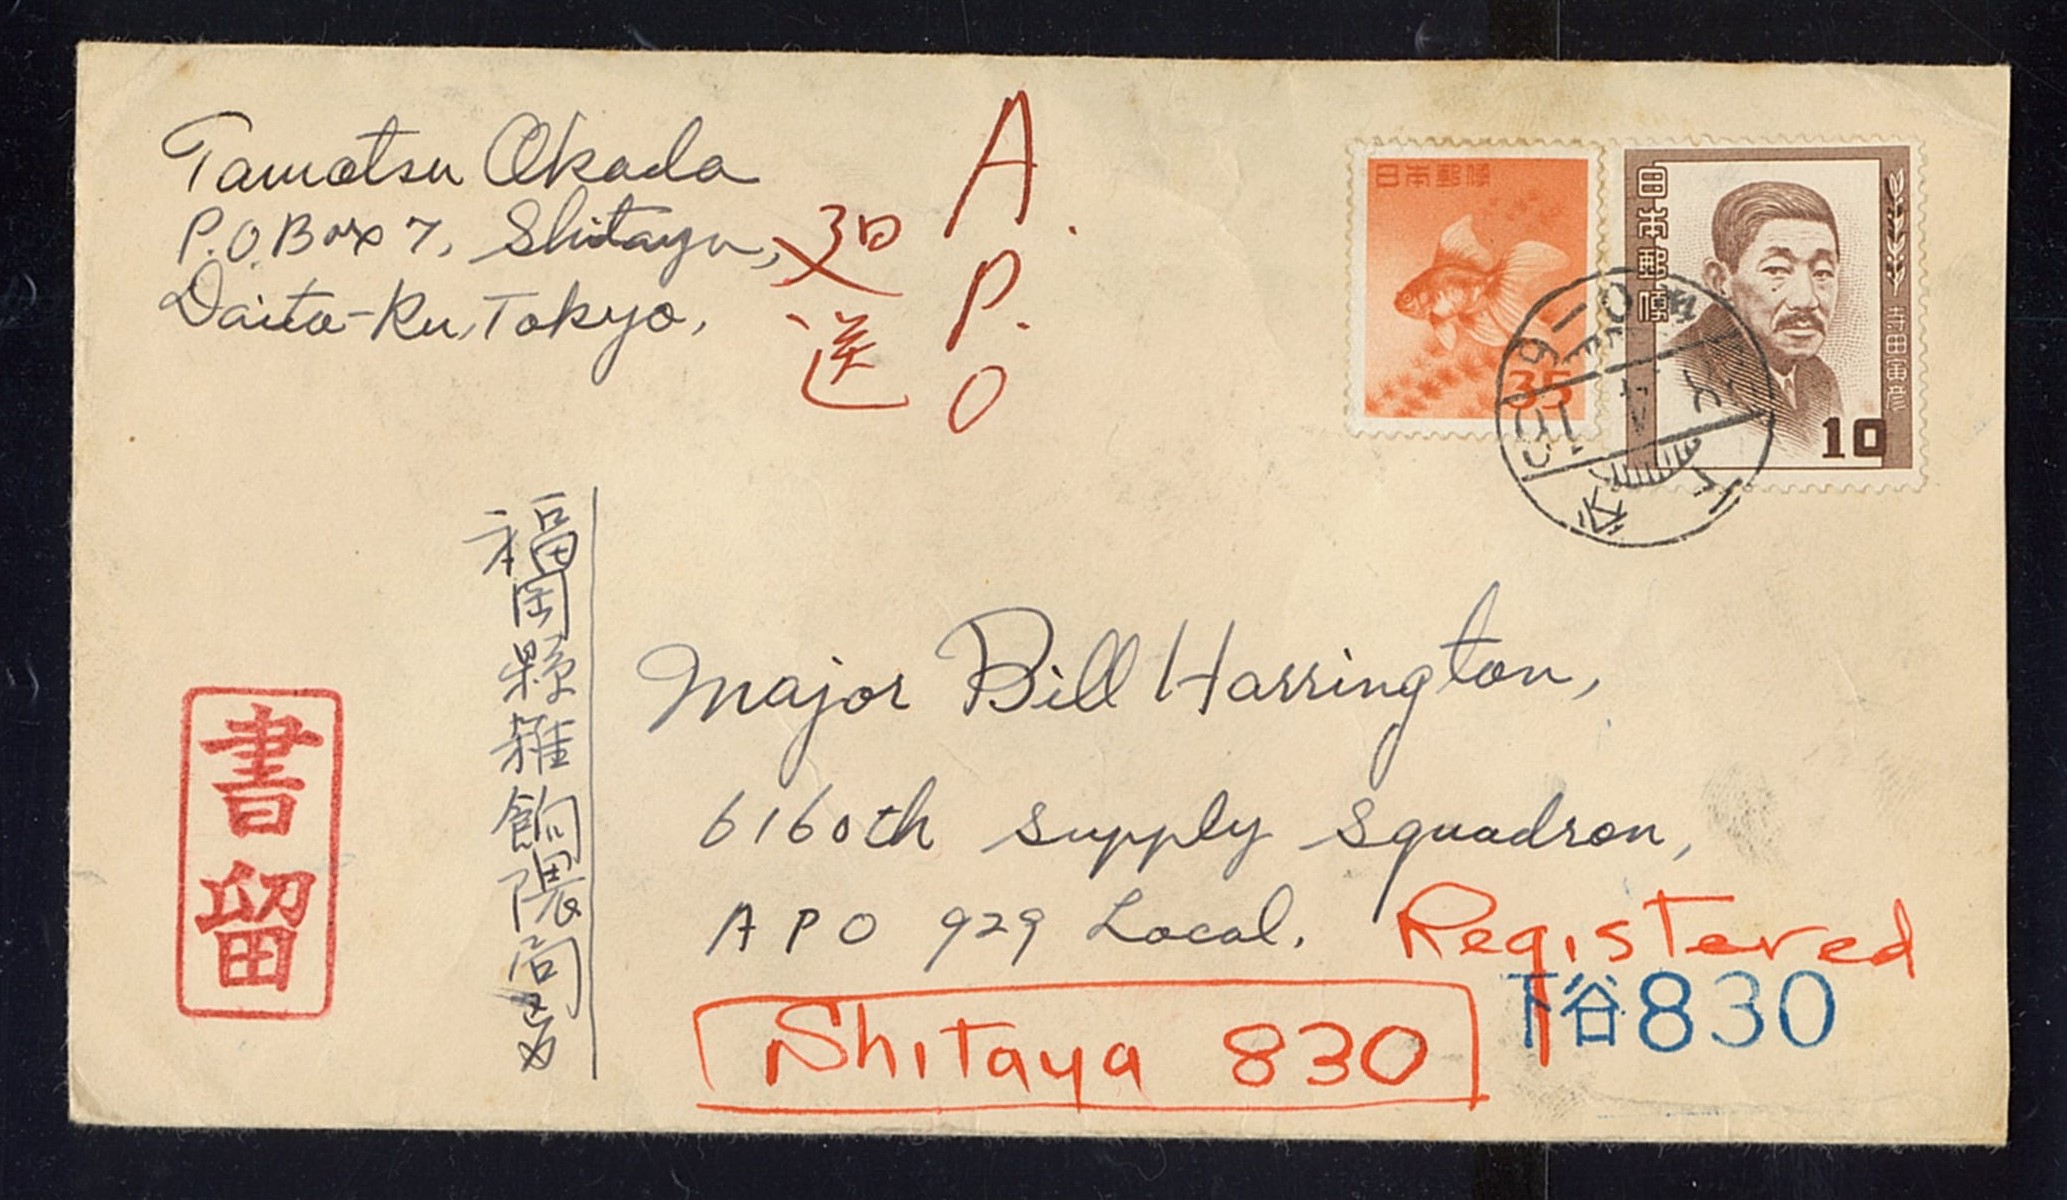 Tamotsu Okada
P.O. Box 7, Shitaya,
Daito-Ku, Tokyo,
A.P.O
廻送
日本郵便
35
日本郵便
寺田寅彦
10
福岡縣雑餉隈局区
Major Bill Harrington,
6160th supply squadron,
APO 929 Local.
Registered
書留
Shitaya 830
下谷830